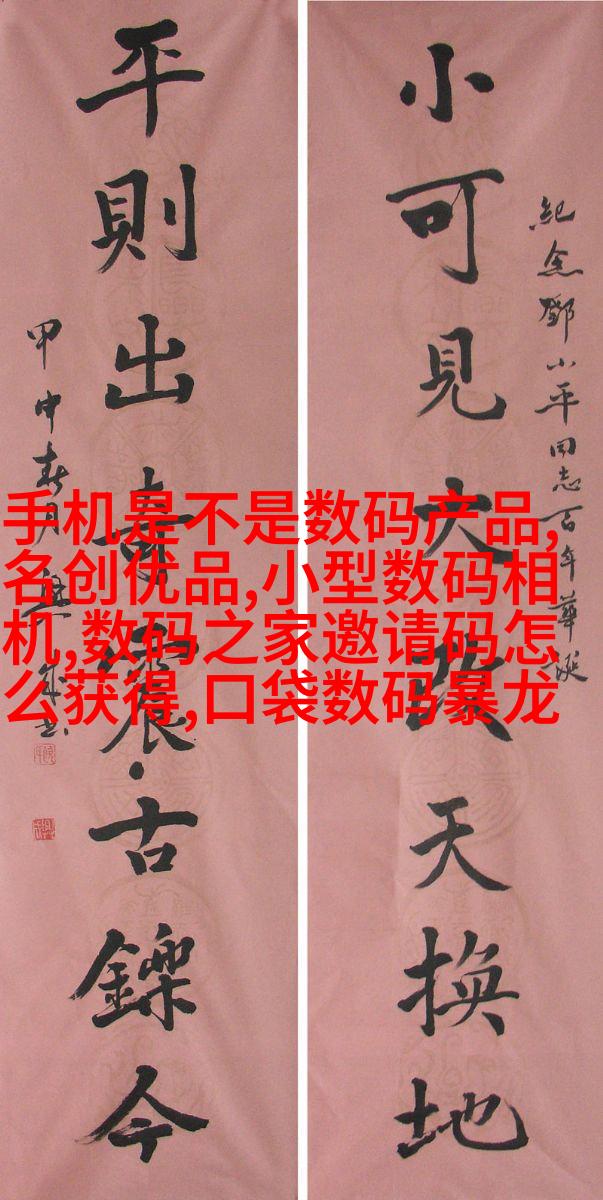 手机是不是数码产品,
名创优品,小型数码相
机,数码之家邀请码怎
么获得,口袋数码暴龙
紀念鄧小平同志百年華誕
小可見大改天換地
平則出奇震古鑠今
甲申春月